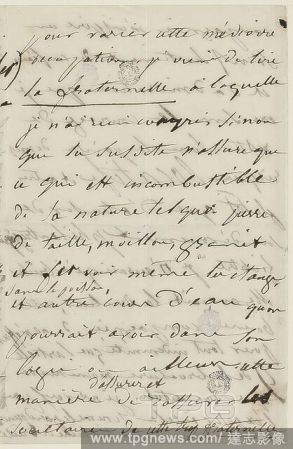 pour varier cette médiocre
occupation je viens de lire
la fraternelle à laquelle
je n'ai rien compris sinon
que la susdite n'assure que
ce qui est incombustible
de sa nature tel que pierre
de taille, moillon, granit
et fer voir même les étangs
sans le poisson,
et autre cours d'eau qu'on
pourrait avoir dans son
logis ou ailleurs cette
d'assurer et
manière de rassurer les
sociétaires de cette
www.tpgnews.com / 達志影像